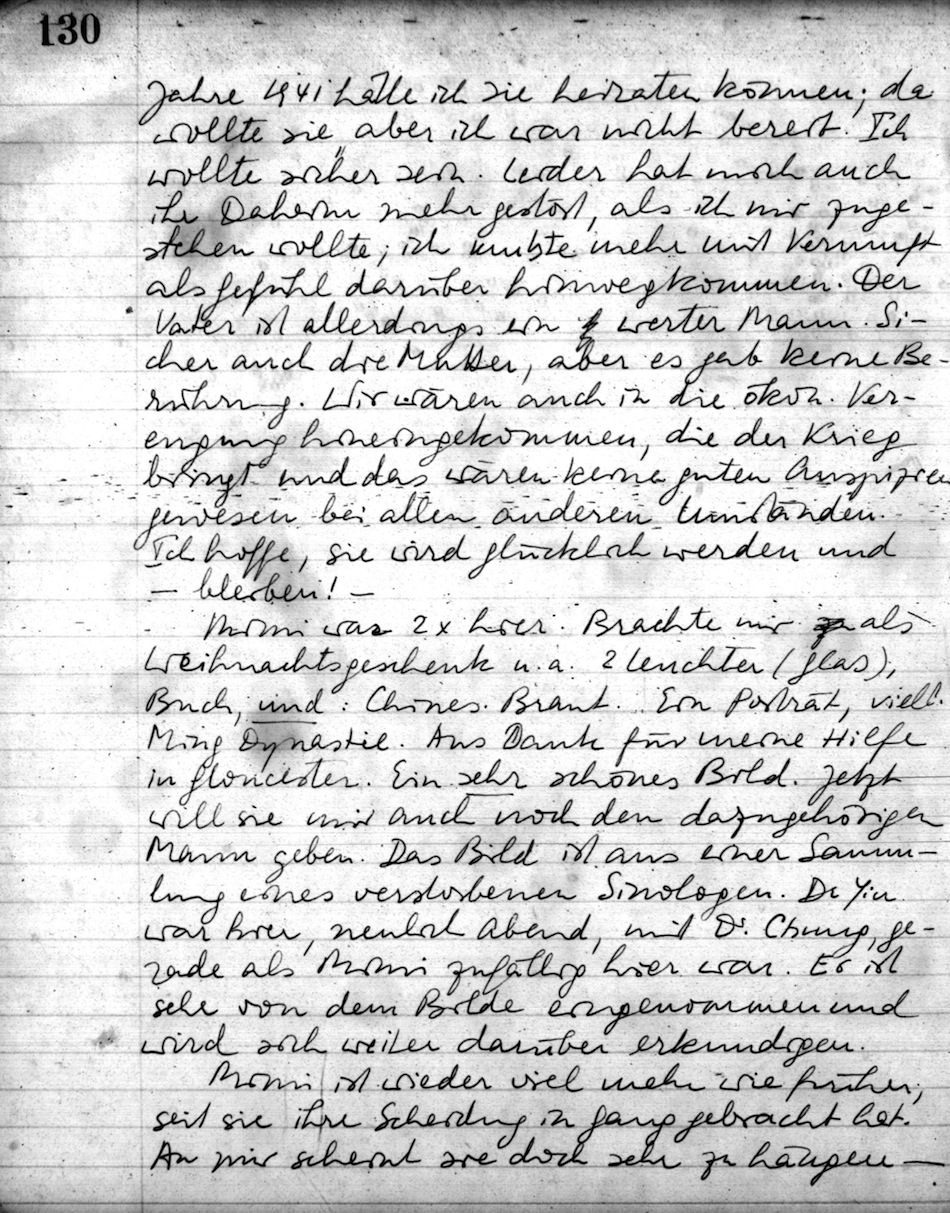 130
Jahre 1941 hätte ich sie heiraten können; da
wollte sie, aber ich war nicht bereit. Ich
wollte sicher sein. Leider hat mich auch
ihr Daheim mehr gestört, als ich mir zuge-
stehen wollte; ich musste mehr mit Vernunft
als Gefühl darüber hinwegkommen. Der
Vater ist allerdings ein werter Mann. Si-
cher auch die Mutter, aber es gab keine Be-
rührung. Wir wären auch in die ökon. Ver-
engung hineingekommen, die der Krieg
bringt und das wären keine guten Auspizien
gewesen bei allen anderen Umständen.
Ich hoffe, sie wird glücklich werden und
– bleiben! –
Mimi war 2 x hier. Brachte mir als
Weihnachtsgeschenk u.a. 2 Leuchter (Glas),
Buch, und: Chines. Braut. Ein Porträt, viell.
Ming Dynastie. Aus Dank für meine Hilfe
in Gloucester. Ein sehr schönes Bild. Jetzt
will sie mir auch noch den dazugehörigen
Mann geben. Das Bild ist aus einer Samm-
lung eines verstorbenen Sinologen. Dr Yin
war hier, neulich Abend, mit Dr. Chung, ge-
rade als Mimi zufällig hier war. Er ist
sehr von dem Bilde eingenommen und
wird sich weiter darüber erkundigen.
Mimi ist wieder viel mehr wie früher,
seit sie ihre Scheidung in Gang gebracht hat.
An mir scheint sie doch sehr zu hängen –